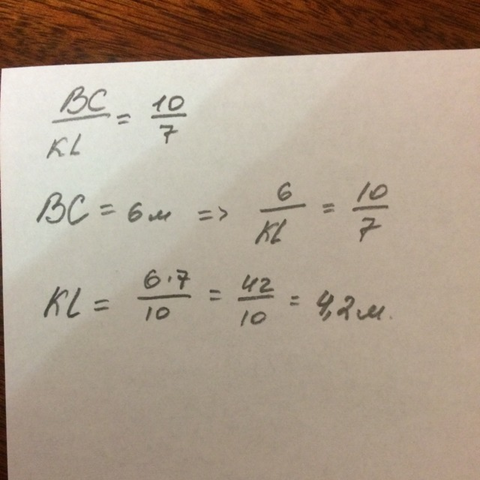 BC/KL = 10/7
BC = 6м => 6/KL = 10/7
KL = 6·7/10 = 42/10 = 4,2м.